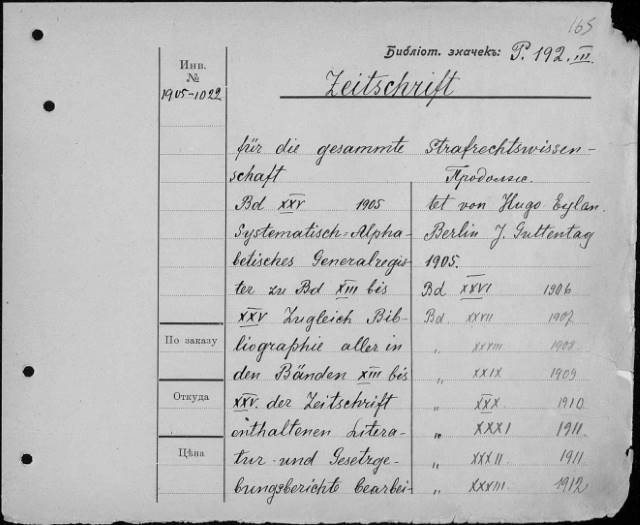 165
Библіот. значекъ: P. 192. III.
Инв.
№
1905-1022
Zeitschrift
für die gesammte Strafrechtswissen-
schaft
Продолж.
Bd XXV 1905
Systematisch-Alpha-
betisches Generalregis-
ter zu Bd XIII bis
XXV Zugleich Bib-
liographie aller in
den Bänden XIII bis
XXV. der Zeitschrift
enthaltenen Litera-
tur- und Gesetzge-
bungsberichte bearbei-
tet von Hugo Eylan.
Berlin J. Guttentag
1905.
Bd XXVI 1906
Bd. XXVII 1907
„ XXVIII 1908
„ XXIX 1909
„ XXX 1910
„ XXXI 1911
„ XXXII 1911
„ XXXIII 1912
По заказу
Откуда
Цѣна